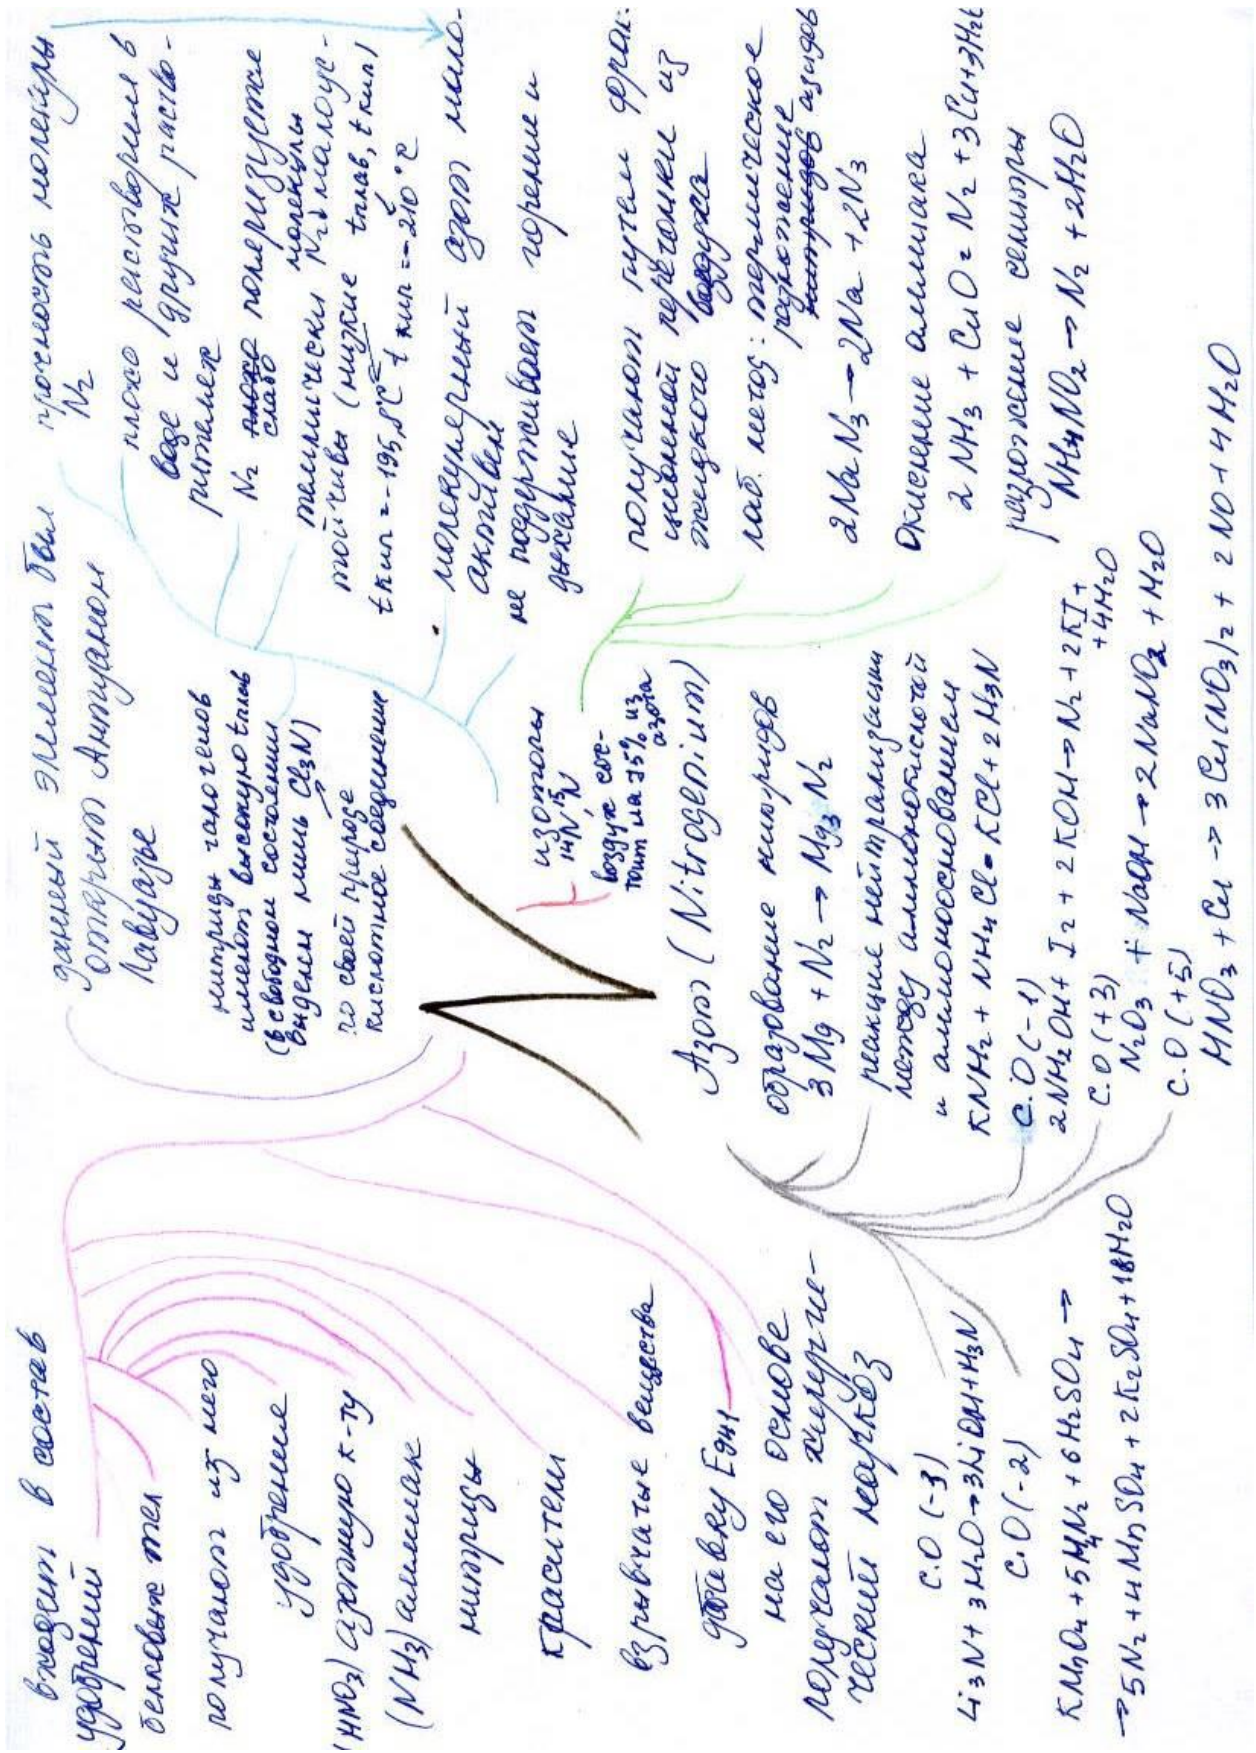 входит в состав
удобрений
белковых тел
получают из него
удобрение
(HNO3) азотную к-ту
(NH3) аммиак
нитриды
красители
взрывчатые вещества
добавку E941
на его основе
получают хирурги-
ческий наркоз
С.О (-3)
Li3N + 3H2O → 3LiOH + H3N
С.О (-2)
KMnO4 + 5N2H4 + 6H2SO4 →
→ 5N2 + 4MnSO4 + 2K2SO4 + 16H2O
данный элемент был
открыт Антуаном
Лавуазье
нитриды галогенов
имеют высокую tплав
(в свободном состоянии
выделен лишь Cl3N)
по своей природе
кислотное соединение
изотопы
14N 15N
воздух сос-
тоит на 75% из
азота
Азот (Nitrogenium)
образование нитридов
3Mg + N2 → Mg3N2
реакция нейтрализации
между аммонокислотой
и аммоноснованием
KNH2 + NH4Cl = KCl + 2H3N
С.О (-1)
2NH2OH + I2 + 2KOH → N2 + 2KI +
+ 4H2O
С.О (+3)
N2O3 + NaOH → 2NaNO2 + H2O
С.О (+5)
HNO3 + Cu → 3Cu(NO3)2 + 2NO + 4H2O
прочность молекулы
N2
плохо растворим в
воде и других раство-
рителях
N2 слабо поляризуется
молекулы
термически N2 малоус-
тойчивы (низкие tплав, tкип)
tкип = -195,8°C tкип = -210°C
молекулярный азот мало-
активен
не поддерживает горение и
дыхание
получают путем фрак-
ционной перегонки из
жидкого воздуха
лаб. метод: термическое
разложение
азидов
2NaN3 → 2Na + 2N3
Окисление аммиака
2NH3 + CuO = N2 + 3Cu + 3H2O
разложение селитры
NH4NO2 → N2 + 2H2O